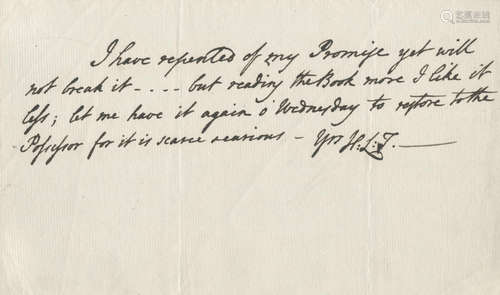 I have repented of my Promise yet will
not break it - . . . . but reading the Book more I like it
less; let me have it again o' Wednesday to restore to the
Possessor for it is scarce & curious - Yrs H:L:T. —